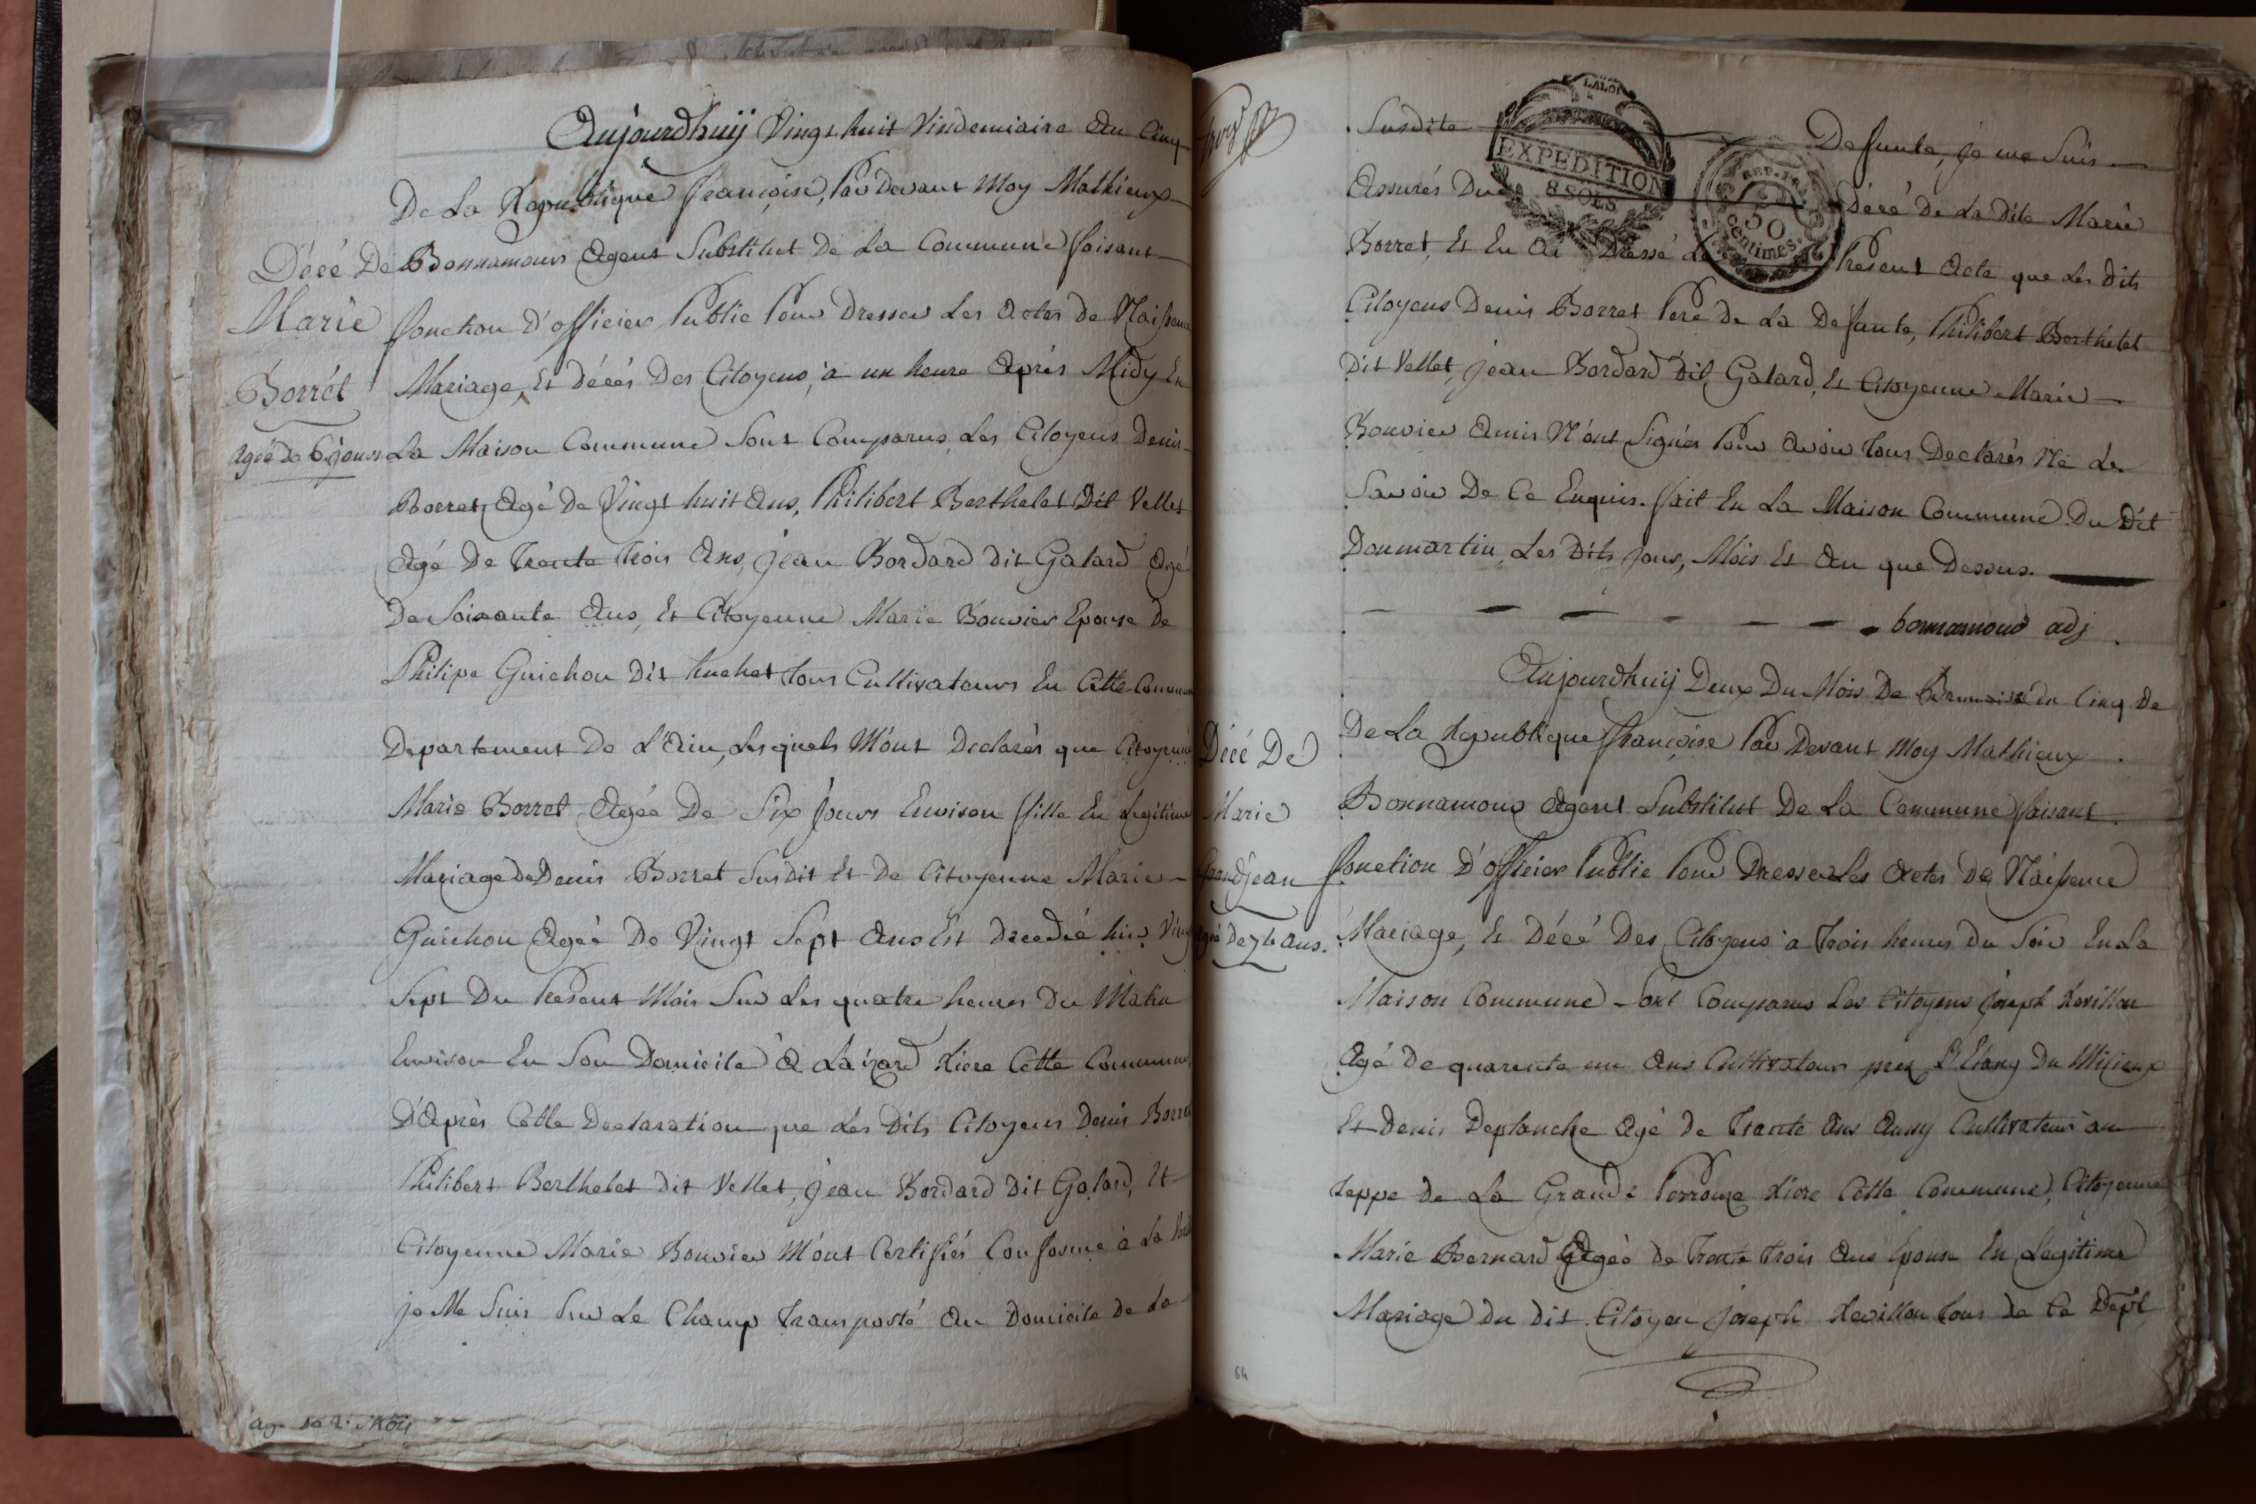 Aujourdhuij Vingt huit Vindemiaire An Cinq
De La Republique francoise, Par Devant Moy Mathieux
Bonnamour Agent Substitut De La Commune faisant
fonction D'officier Public Pour Dresser Les Actes de Naissance
Mariage, Et Décés Des Citoyens, a un heure Aprés Midy En
La Maison Commune Sont Comparus Les Citoyens Denis
Borret Agé De Vingt huit Ans, Philibert Berthelet Dit Vellet
Agé De Trente Trois Ans, jean Bordard dit Galard Agé
De Soixante Ans, Et Citoyenne Marie Bouvier Epouse de
Philipe Guichon Dit huchet Tous Cultivateurs En Cette Commune
Departement De L'Ain, Lesquels M'ont Declarés que Citoyenne
Marie Borret Agéé De Six Jours Environ fille En Legitime
Mariage De Denis Borret Susdit Et De Citoyenne Marie
Guichon Ageé De Vingt Sept Ans Est Decedeé hier Vingt
Sept Du Present Mois Sur Les quatre heures Du Matin
Environ En Son Domicile A Laizard Riere Cette Commune
D'Aprés Cette Declaration que Les Dits Citoyens Denis Borret
Philibert Berthelet dit Vellet, jean Bordard Dit Galard, Et
Citoyenne Marie Bouvier M'ont Certifiés Conforme à La
je Me Suis Sur Le Champ Transporté Au Domicile De La
Décé De
Marie
Borrét
Agéé de 6 jours
LALOI
EXPEDITION
8 SOLS
REP. FRA
50
Centimes.
Susdite Defunte, je me Suis
Assurés Du Décé De La Dite Marie
Borret, Et En Ai Dressé Le Present Acte que Les Dits
Citoyens Denis Borret Pere De La Defunte, Philibert Berthelet
Dit Vellet, jean Bordard Dit Galard, Et Citoyenne Marie
Bouvier Amis N'ont Signés Pour Avoir Tous Declarés Ne Le
Savoir De Ce Enquis. fait En La Maison Commune Du Dit
Donmartin, Les Dits Jour, Mois Et An que Dessus.
bonnamour adj
Aujourdhuij Deux Du Mois De Brumaire An Cinq De
De La Republique françoise Par Devant Moy Mathieux
Bonnamour Agent Substitut De La Commune faisant
fonction D'officier Public Pour Dresser Les Actes De Naissence
Mariage, Et Décé Des Citoyens a Trois heures Du Soir En La
Maison Commune Sont Comparus Les Citoyens Joseph Revillon
Agé De quarente un Ans Cultivateur pres L'Etang Du
Et Denis Deplanche Agé de Trante Ans Aussy Cultivateur au
Teppe de La Grande Perrouze Riere Cette Commune, Citoyenne
Marie Bernard Ageé de Trente Trois Ans Epouse En Legitime
Mariage Du Dit Citoyen Joseph Revillon Tous de Ce Dept
Décé De
Marie
Grandjean
64